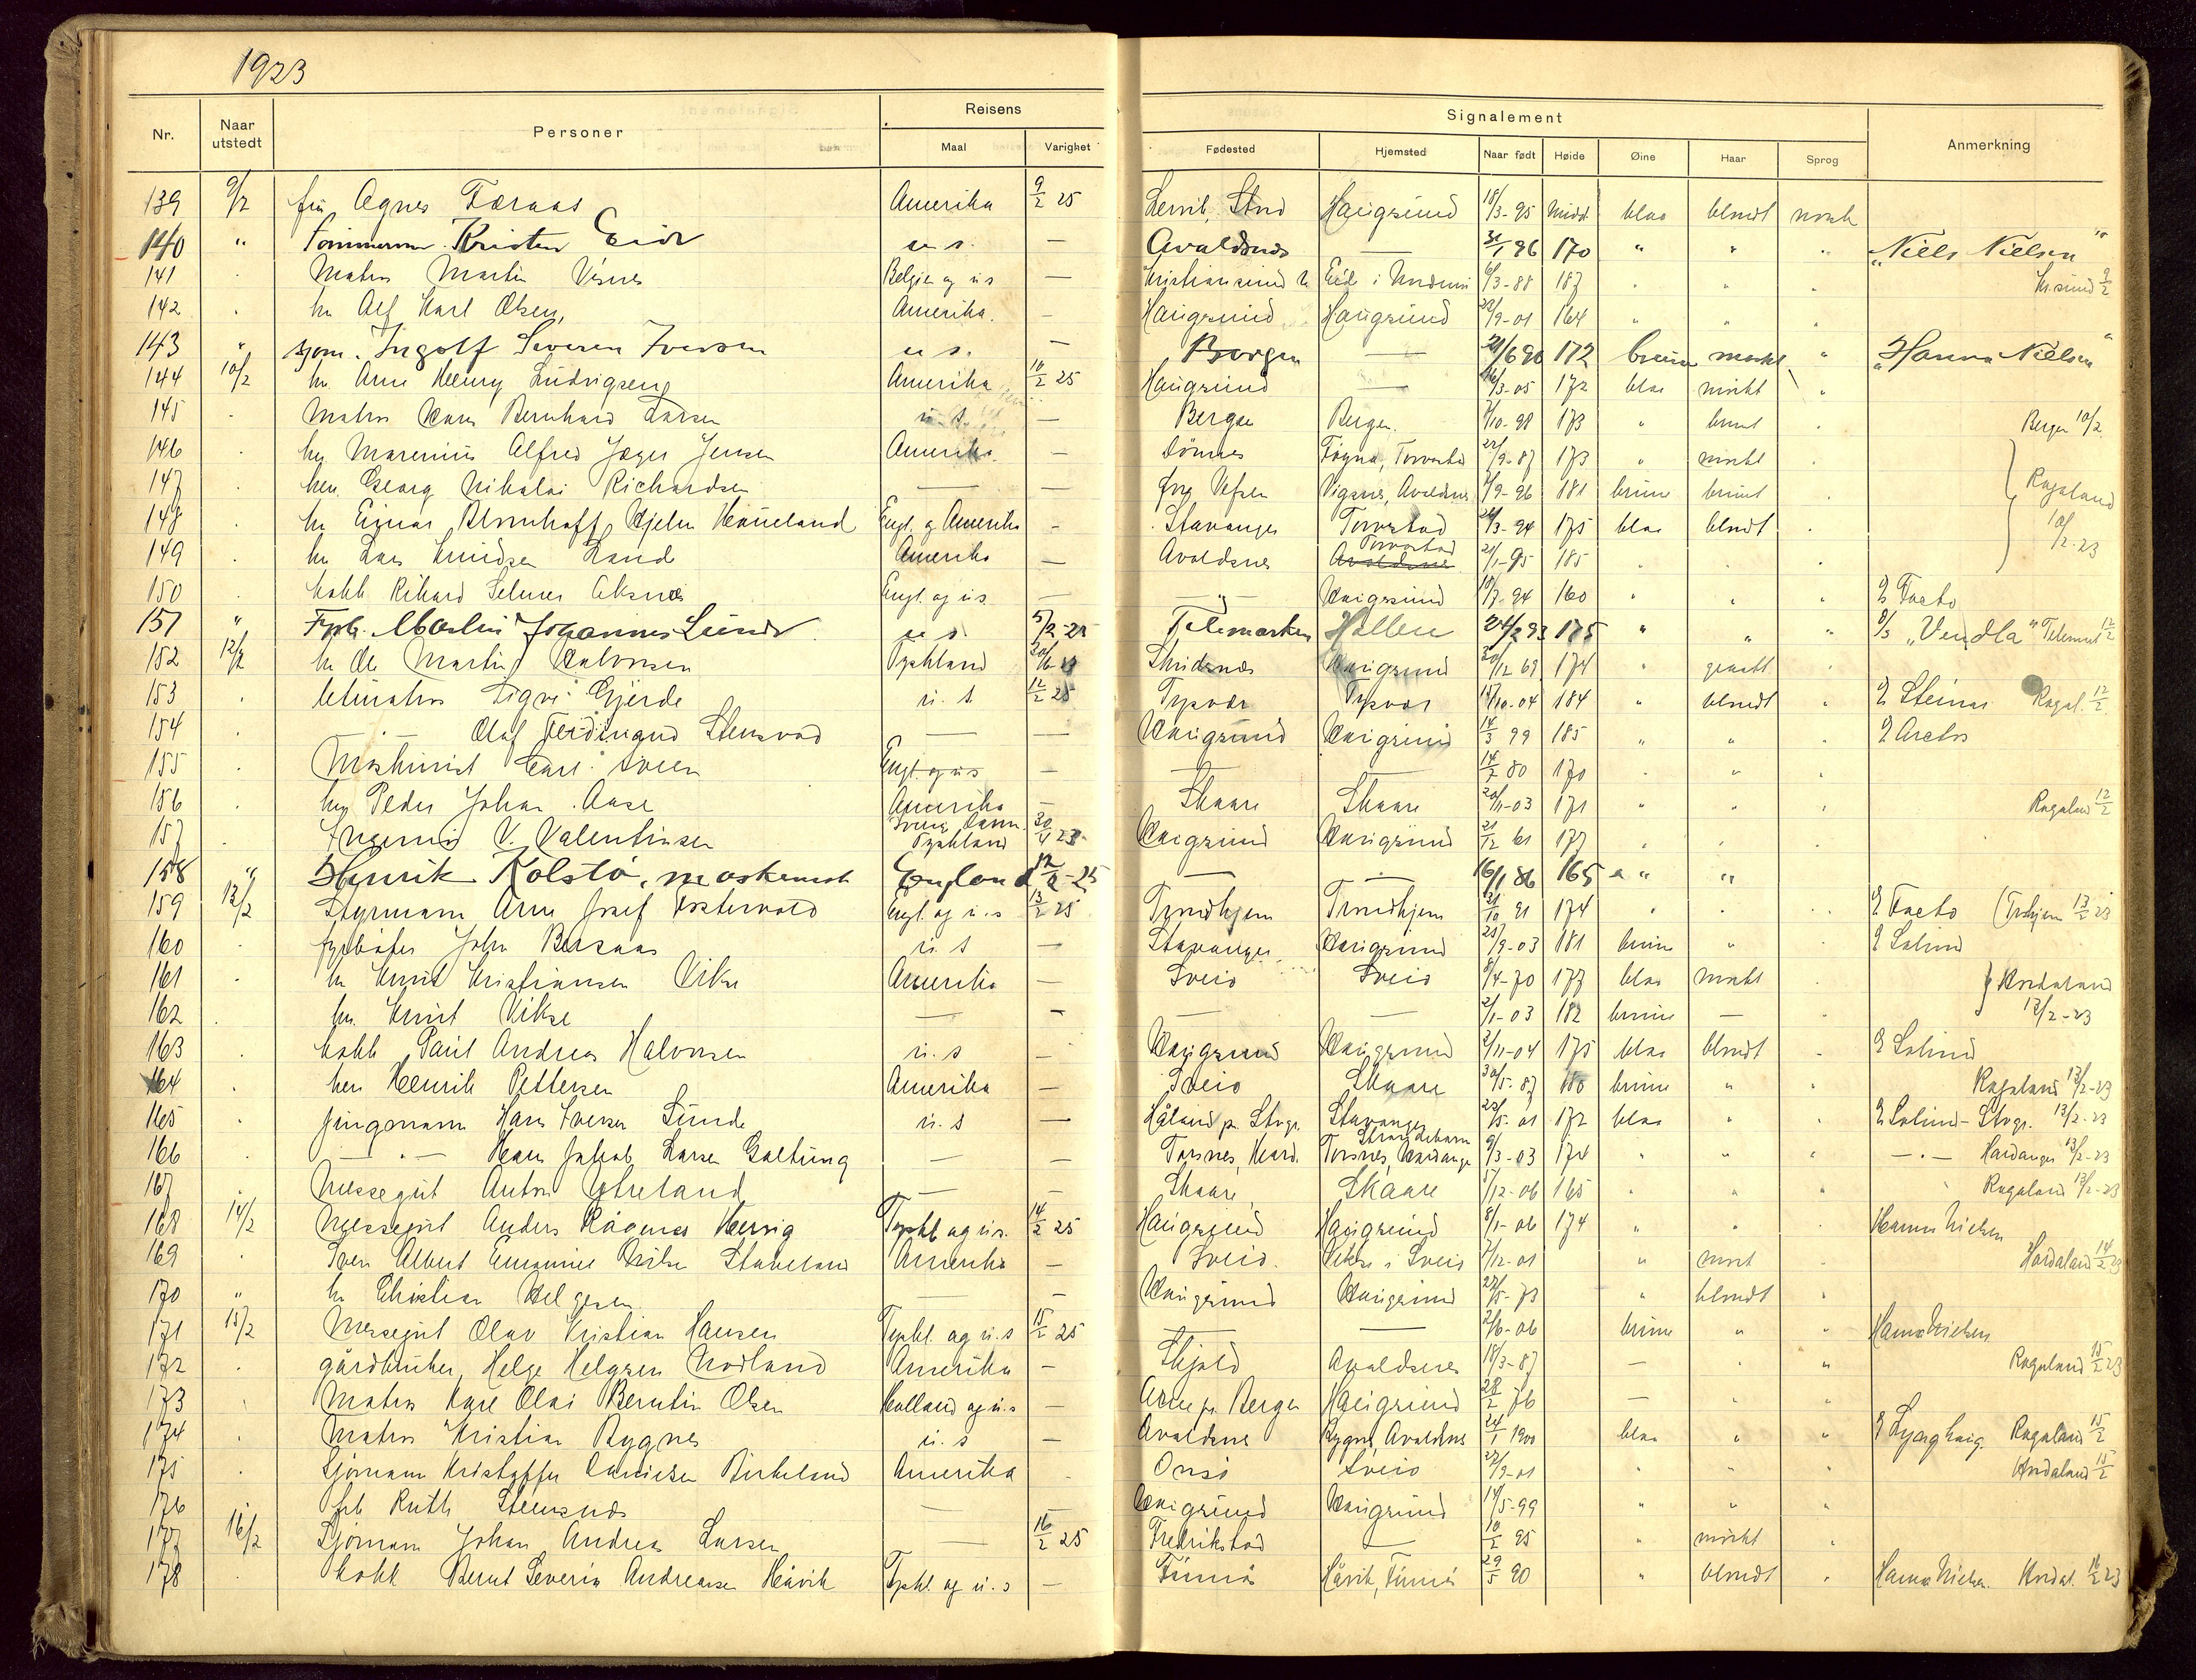 1923
Nr. Naar utstedt Personer Reisens Maal Varighet Signalement Fødested Hjemsted Naar født Høide Øine Haar Sprog Anmerkning
139 9/2 fru Agnes Færaas Amerika 9/2 25 Lervik, Stord Haugesund 18/3-95 midd. blaa blondt norsk
140 " Tømmerm. Kristen Eide u.s. — Avaldsnes — 31/1 96 170 " " " "Niels Nielsen"
141 . Matros Martin Visnes Belgien og u.s — Kristiansund N. Eide i Nordmør 6/3-88 187 " " " Kr.sund 9/2
142 . hr. Alf Karl Olsen, Amerika. — Haugesund Haugesund 23/9-01 164 " " "
143 " sjøm. Ingolf Severin Iversen u s. — Bergen — 21/6 90 172 brune mørkt " "Hanna Nielsen"
144 10/2 hr. Arne Henry Ludvigsen Amerika 10/2 25 Haugesund — 16/3-05 172 blaa mørkt "
145 . Matros Hans Bernhard Larsen u. s. — Bergen Bergen. 7/10-98 173 " brunt Bergen 10/2
146 . hr Marenius Alfred Jæger Jensen Amerika. — Dønnes Føyna, Torvastad 22/9-87 173 " mørkt . Rogaland 10/2-23
147 . hr. Georg Nikolai Richardsen — — Vefsen Vigsnes, Avaldsnes 7/9-96 181 brune brunt .
148 . hr Einar Hjelm Haueland Engl. og Amerika - Stavanger Torvestad 24/3-94 175 blaa blondt .
149 . hr Lars Knudsen Lande Amerika — Avaldsnes Torvastad 21/1-95 185 . . .
150 . kokk Rikard Selmer Aksnes Engl. og u.s. — — " — Haugesund 18/7-94 160 " " " D/S Facto
151 " Fyrb. Martin Johannes Lunde u s. 5/2-25 Telemarken Hollen 24/2 93 175 " " " S/S "Vendla" Telemark 12/2
152 12/2 hr Ole Martin Halvorsen Tyskland 20/6-23 Skudesnes Haugesund 30/12 69 174 " graatt .
153 . letmatros Sigve Gjerde u. s 12/2 25 Tysvær Tysvær 14/10-04 184 " blondt " D/S Steinar Rogal. 12/2
154 — . — Olaf Ferdinand Stensvad — — Haugesund Haugesund 14/3 99 185 " " . D/S Arctos
155 . Maskinist Carl Sveen Engl. og u s — — — 14/2 80 170 . " .
156 . hr Peder Johan Aase Amerika — Skaare Skaare 20/11-03 171 " " . Rogaland 12/2
157 . Ingeniør V. Valentinsen Sverig, Danm. Tyskland 30/4 23 Haugesund Haugesund 21/12 61 177 . . .
158 " Henrik Kolstø, maskinist England 12/2-25 — — 16/1 86 165 " "
159 13/2 Styrmann Arne Josef Østervold Engl. og u.s 13/2 25 Trondhjem Trondhjem 21/10 91 174 . . . D/S Facto (Trhjem 13/2 23
160 . fyrbøter John Bersaas u. s — Stavanger Haugesund 25/9-03 181 brune " D/S Solund
161 . hr Knut Kristiansen Vikse Amerika — Sveio Sveio 8/4-70 177 blaa mørkt . Hordaland 13/2-23
162 . hr. Knut Vikse — — — — 2/1-03 182 brune — .
163 . kokk Paul Andreas Halvorsen u. s — Haugesund Haugesund 2/11-04 175 blaa blondt . D/S Solund
164 . herr Henrik Pettersen Amerika — Sveio Skaare 30/5-87 180 brune " . Rogaland 13/2-23
165 . Jungmann Hans Iversen Sunde u. s — Håland pr. Stvgr. Stavanger 25/5-01 172 blaa " . D/S Solund - Stvgr. 13/2-23
166 . — " — Hans Jakob Larsen Galtung — — Torsnes, Hard. Strandebarm Torsnes, Hardanger 9/3-03 174 " " " — . — Hardanger 13/2-23
167 . Messegut Anton Ytreland — — Skaare Skaare 5/12-06 165 . " " Rogaland 13/2-23
168 14/2 Messegut Anders Ragnar Hervig Tyskl og u.s. 14/2 25 Haugesund Haugesund 8/1-06 174 " " . Hanna Nielsen
169 . Sven Albert Emanuel Stakeland Amerika — Sveio. Vikse i Sveio 7/12-01 " mørkt . Hordaland 14/2 23
170 " hr Christian Helgesen — — Haugesund Haugesund 22/5-73 " blondt "
171 15/2 Messegut Olav Kristian Hansen Tyskl. og u. s 15/2 25 — — 2/6-06 brune " " Hanna Nielsen
172 . gårdbruker Helge Helgesen Nodland Amerika — Skjold Avaldsnes 18/3-87 — . " Rogaland 15/2 23
173 . Matros Kare Olai Berntin Olsen Holland og u.s — Arne pr. Bergen Haugesund 28/2 76 — " "
174 . Matros Kristian Rygnes u. s — Avaldsnes Avaldsnes 24/1 1900 blaa " " D/S Lynghaug Rogaland 15/2
175 . Sjømann Kristoffer Danielsen Birkeland Amerika - Onsø Sveio 22/9-01 " " " Hordaland 15/2
176 frk Ruth Steensnæs — — Haugesund Haugesund 14/5-99 " " "
177 16/2 Sjømann Johan Andreas Larsen — 16/2 25 Fredrikstad — 10/2 95 " mørkt .
178 . kokk Bernt Severin Andreasen Håvik Tyskl. og u. s — Finnås Håvik, Finnås 29/5 90 " blondt . Hanna Nielsen. Hordal. 16/2 23